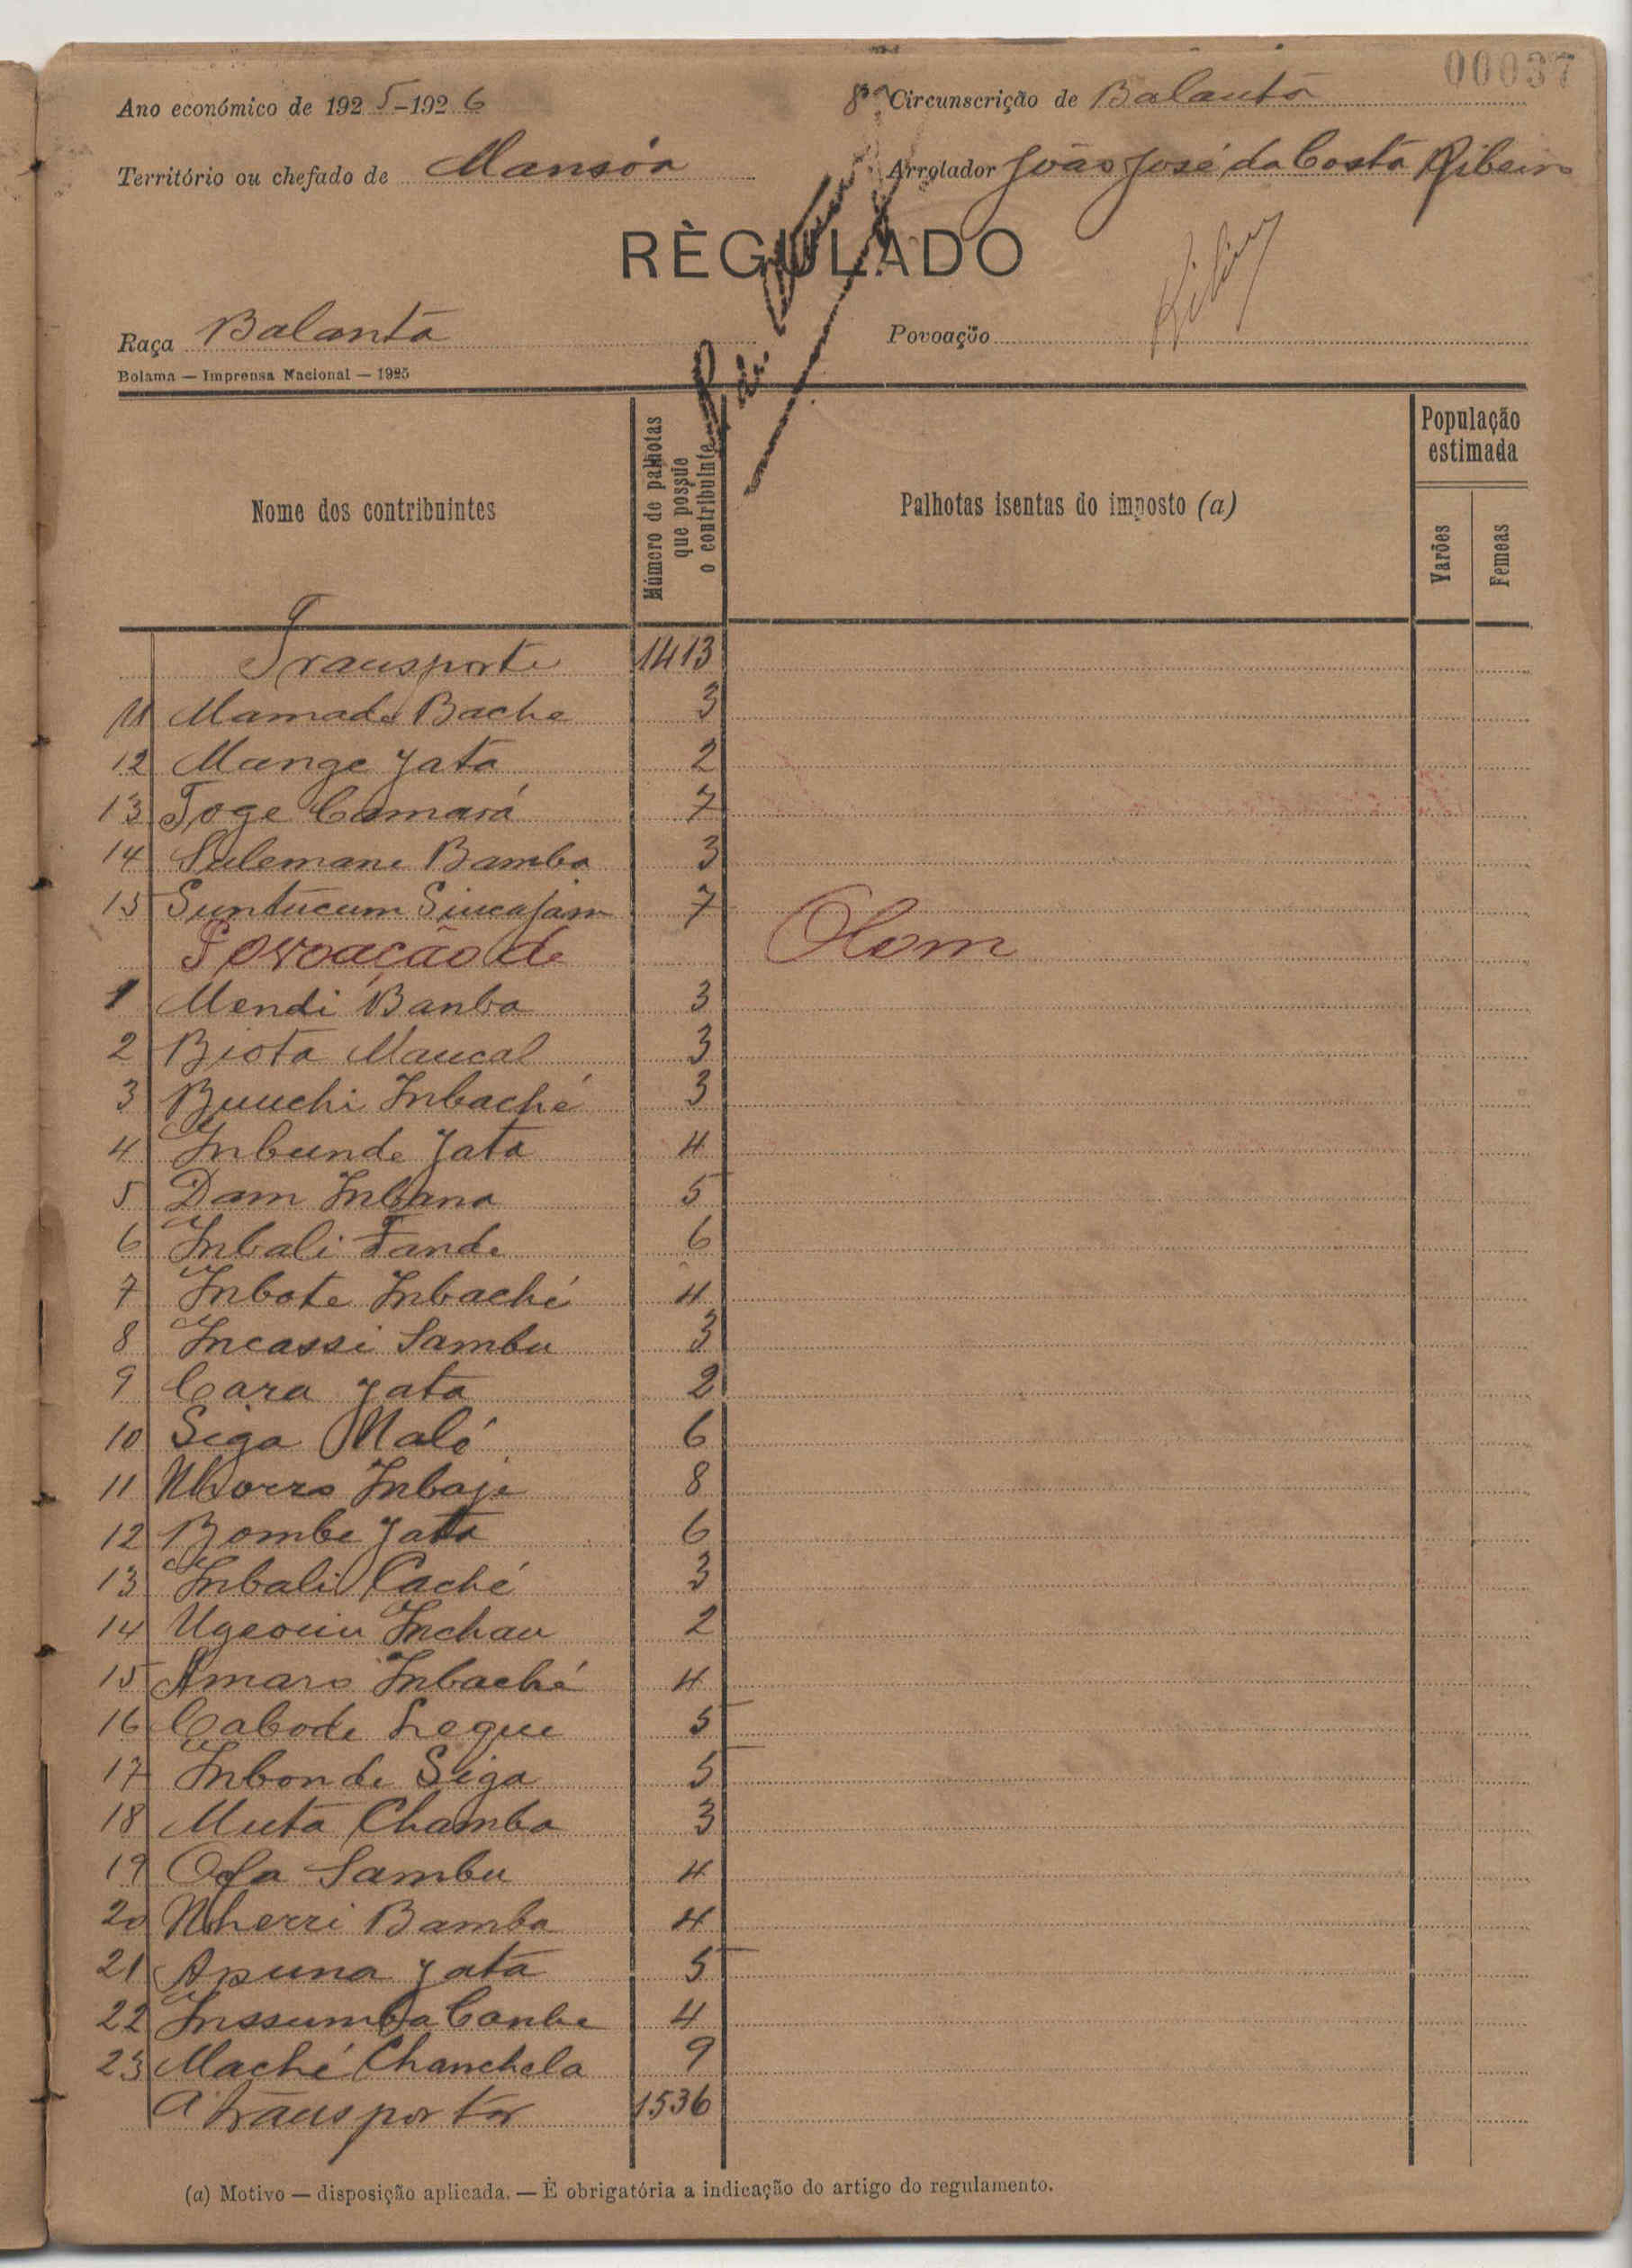 00037
Ano económico de 1925-1926
8ª Circunscrição de Balanta
Território ou chefado de Mansôa
Arrolador João José da Costa Ribeiro
RÈGULADO
Raça Balanta
Povoação
Bolama — Imprensa Nacional — 1925
Nome dos contribuintes
Número de palhotas que possue o contribuinte
Palhotas isentas do imposto (a)
População estimada
Varões
Femeas
Transporte 1413
11 Mamadu Bache 3
12 Mange Jata 2
13 Toge Camará 7
14 Sulemane Bamba 3
15 Suntucum Sincajam 7
Povoação de Olom
1 Mendi Banba 3
2 Biota Mancal 3
3 Buuchi Inbaché 3
4 Inbunde Jata 4
5 Dam Inbana 5
6 Inbali Fande 6
7 Inbote Inbaché 4
8 Incassi Sambu 3
9 Cara Jata 2
10 Siga Naló 6
11 Nhorro Inbaje 8
12 Bombe Jata 6
13 Inbali Caché 3
14 Inchau 2
15 Amaro Inbaché 4
16 Cabode Legue 5
17 Inbonde Siga 5
18 Muta Chamba 3
19 Ofa Sambu 4
20 Nherri Bamba 4
21 Apuna Jata 5
22 Inssumba Canbe 4
23 Maché Chanchela 9
A transportar 1536
(a) Motivo — disposição aplicada. — È obrigatória a indicação do artigo do regulamento.